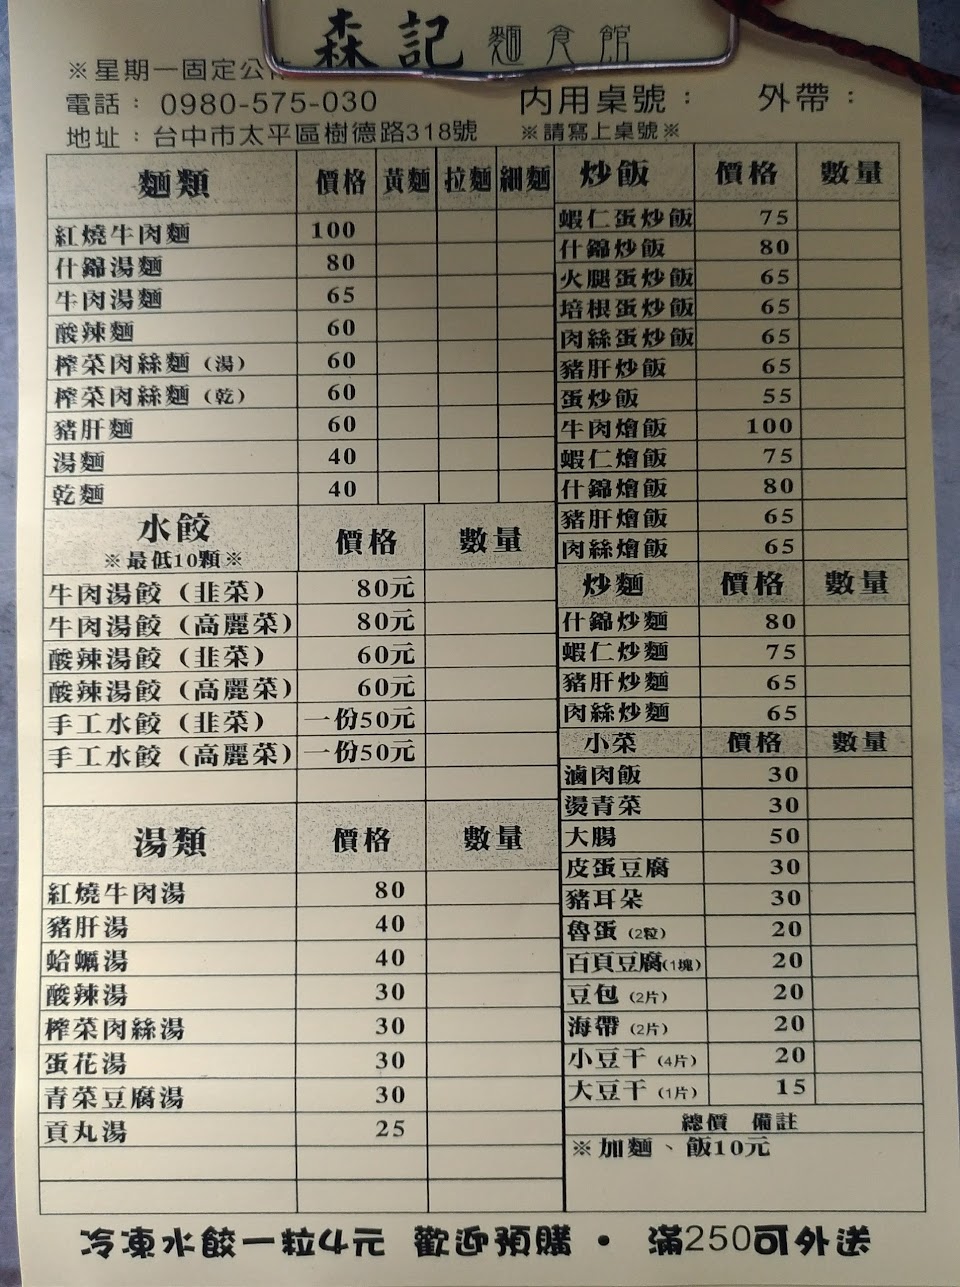 森記 麵食館
※星期一固定公
電話：0980-575-030
內用桌號： 外帶：
地址：台中市太平區樹德路318號
※請寫上桌號※
麵類 價格 黃麵 拉麵 細麵
紅燒牛肉麵 100
什錦湯麵 80
牛肉湯麵 65
酸辣麵 60
榨菜肉絲麵（湯） 60
榨菜肉絲麵（乾） 60
豬肝麵 60
湯麵 40
乾麵 40
水餃 價格 數量
※最低10顆※
牛肉湯餃（韭菜） 80元
牛肉湯餃（高麗菜） 80元
酸辣湯餃（韭菜） 60元
酸辣湯餃（高麗菜） 60元
手工水餃（韭菜） 一份50元
手工水餃（高麗菜） 一份50元
湯類 價格 數量
紅燒牛肉湯 80
豬肝湯 40
蛤蠣湯 40
酸辣湯 30
榨菜肉絲湯 30
蛋花湯 30
青菜豆腐湯 30
貢丸湯 25
炒飯 價格 數量
蝦仁蛋炒飯 75
什錦炒飯 80
火腿蛋炒飯 65
培根蛋炒飯 65
肉絲蛋炒飯 65
豬肝炒飯 65
蛋炒飯 55
牛肉燴飯 100
蝦仁燴飯 75
什錦燴飯 80
豬肝燴飯 65
肉絲燴飯 65
炒麵 價格 數量
什錦炒麵 80
蝦仁炒麵 75
豬肝炒麵 65
肉絲炒麵 65
小菜 價格 數量
滷肉飯 30
燙青菜 30
大腸 50
皮蛋豆腐 30
豬耳朵 30
魯蛋（2粒） 20
百頁豆腐（1塊） 20
豆包（2片） 20
海帶（2片） 20
小豆干（4片） 20
大豆干（1片） 15
總價 備註
※加麵、飯10元
冷凍水餃一粒4元 歡迎預購・滿250可外送